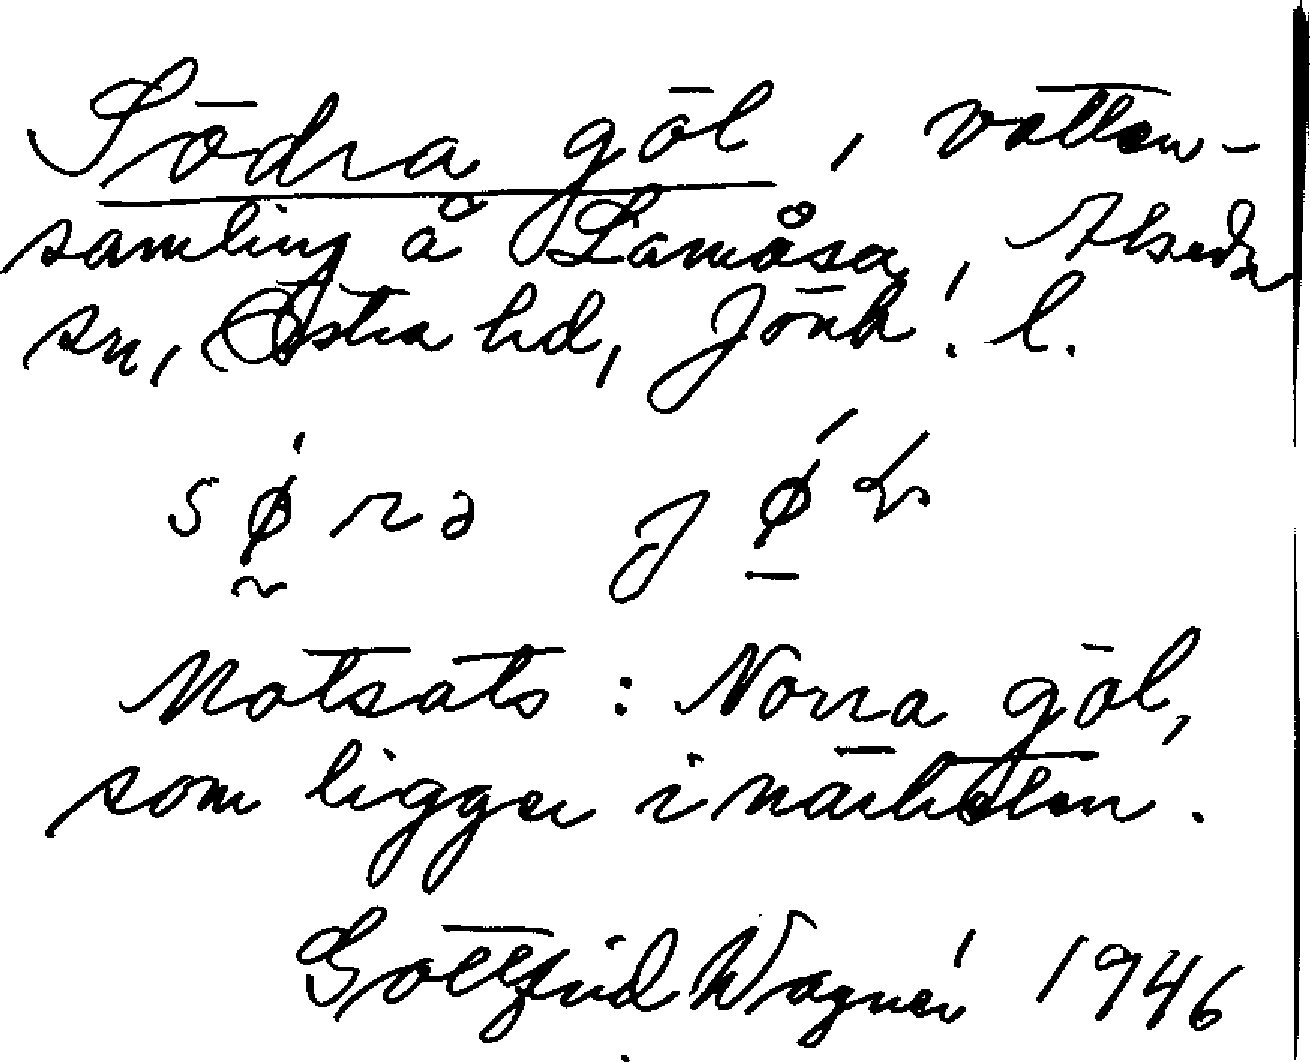 Södra göl, vatten-
samling å Lamåsa, Alseda
sn, Östra hd, Jönk. l.
sørə jøɫ
Motsats: Norra göl,
som ligger i närheten.
Gottfrid Wagnér 1946